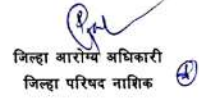 जिल्हा आरोग्य अधिकारी
जिल्हा परिषद नाशिक